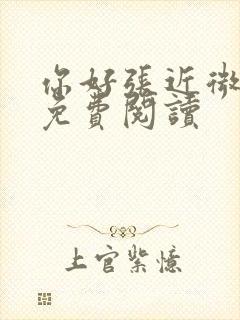 你好張近微
免費閱讀
上官紫憶